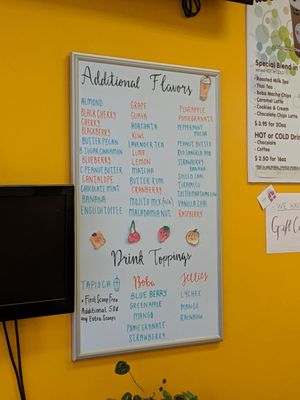 Additional Flavors
ALMOND
BLACK CHERRY
CHERRY
BLACKBERRY
BUTTER PECAN
BLUEBERRY
CANTALOPE
CHOCOLATE MINT
BANANA
ENGLISH TOFFEE
GRAPE
GUAVA
HORCHATA
KIWI
LAVENDER TEA
LIME
LEMON
MATCHA
BUTTER RUM
CRANBERRY
MOJITO MIX
MACADAMIA NUT
PINEAPPLE
POMEGRANATE
PEPPERMINT
MOCHA
PEANUT BUTTER
STRAWBERRY
BANANA
TIRAMISU
VANILLA CHAI
RASPBERRY
Drink Toppings
TAPIOCA
* First Scoop Free
Additional 50¢
any Extra Scoops
Boba
BLUE BERRY
GREEN APPLE
MANGO
POMEGRANATE
STRAWBERRY
Jellies
LYCHEE
MANGO
RAINBOW
Special Blend-in
• Roasted Milk Tea
• Thai Tea
• Boba Mocha Chips
• Caramel Latte
• Cookies & Cream
• Chocolate Chips Latte
$ 3.95 for 20oz
HOT or COLD
• Chocolate
• Coffee
$ 2.50 for 16oz
WE HAVE
Gift